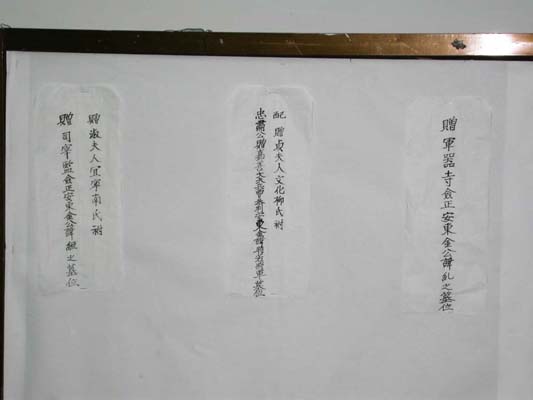 贈軍器寺僉正安東金公諱乩之墓位
配 贈貞夫人文化柳氏祔
忠肅公贈嘉善大夫 東金諱 將軍墓位
贈淑夫人宜寧南氏祔
贈司宰監僉正安東金公諱 之墓位